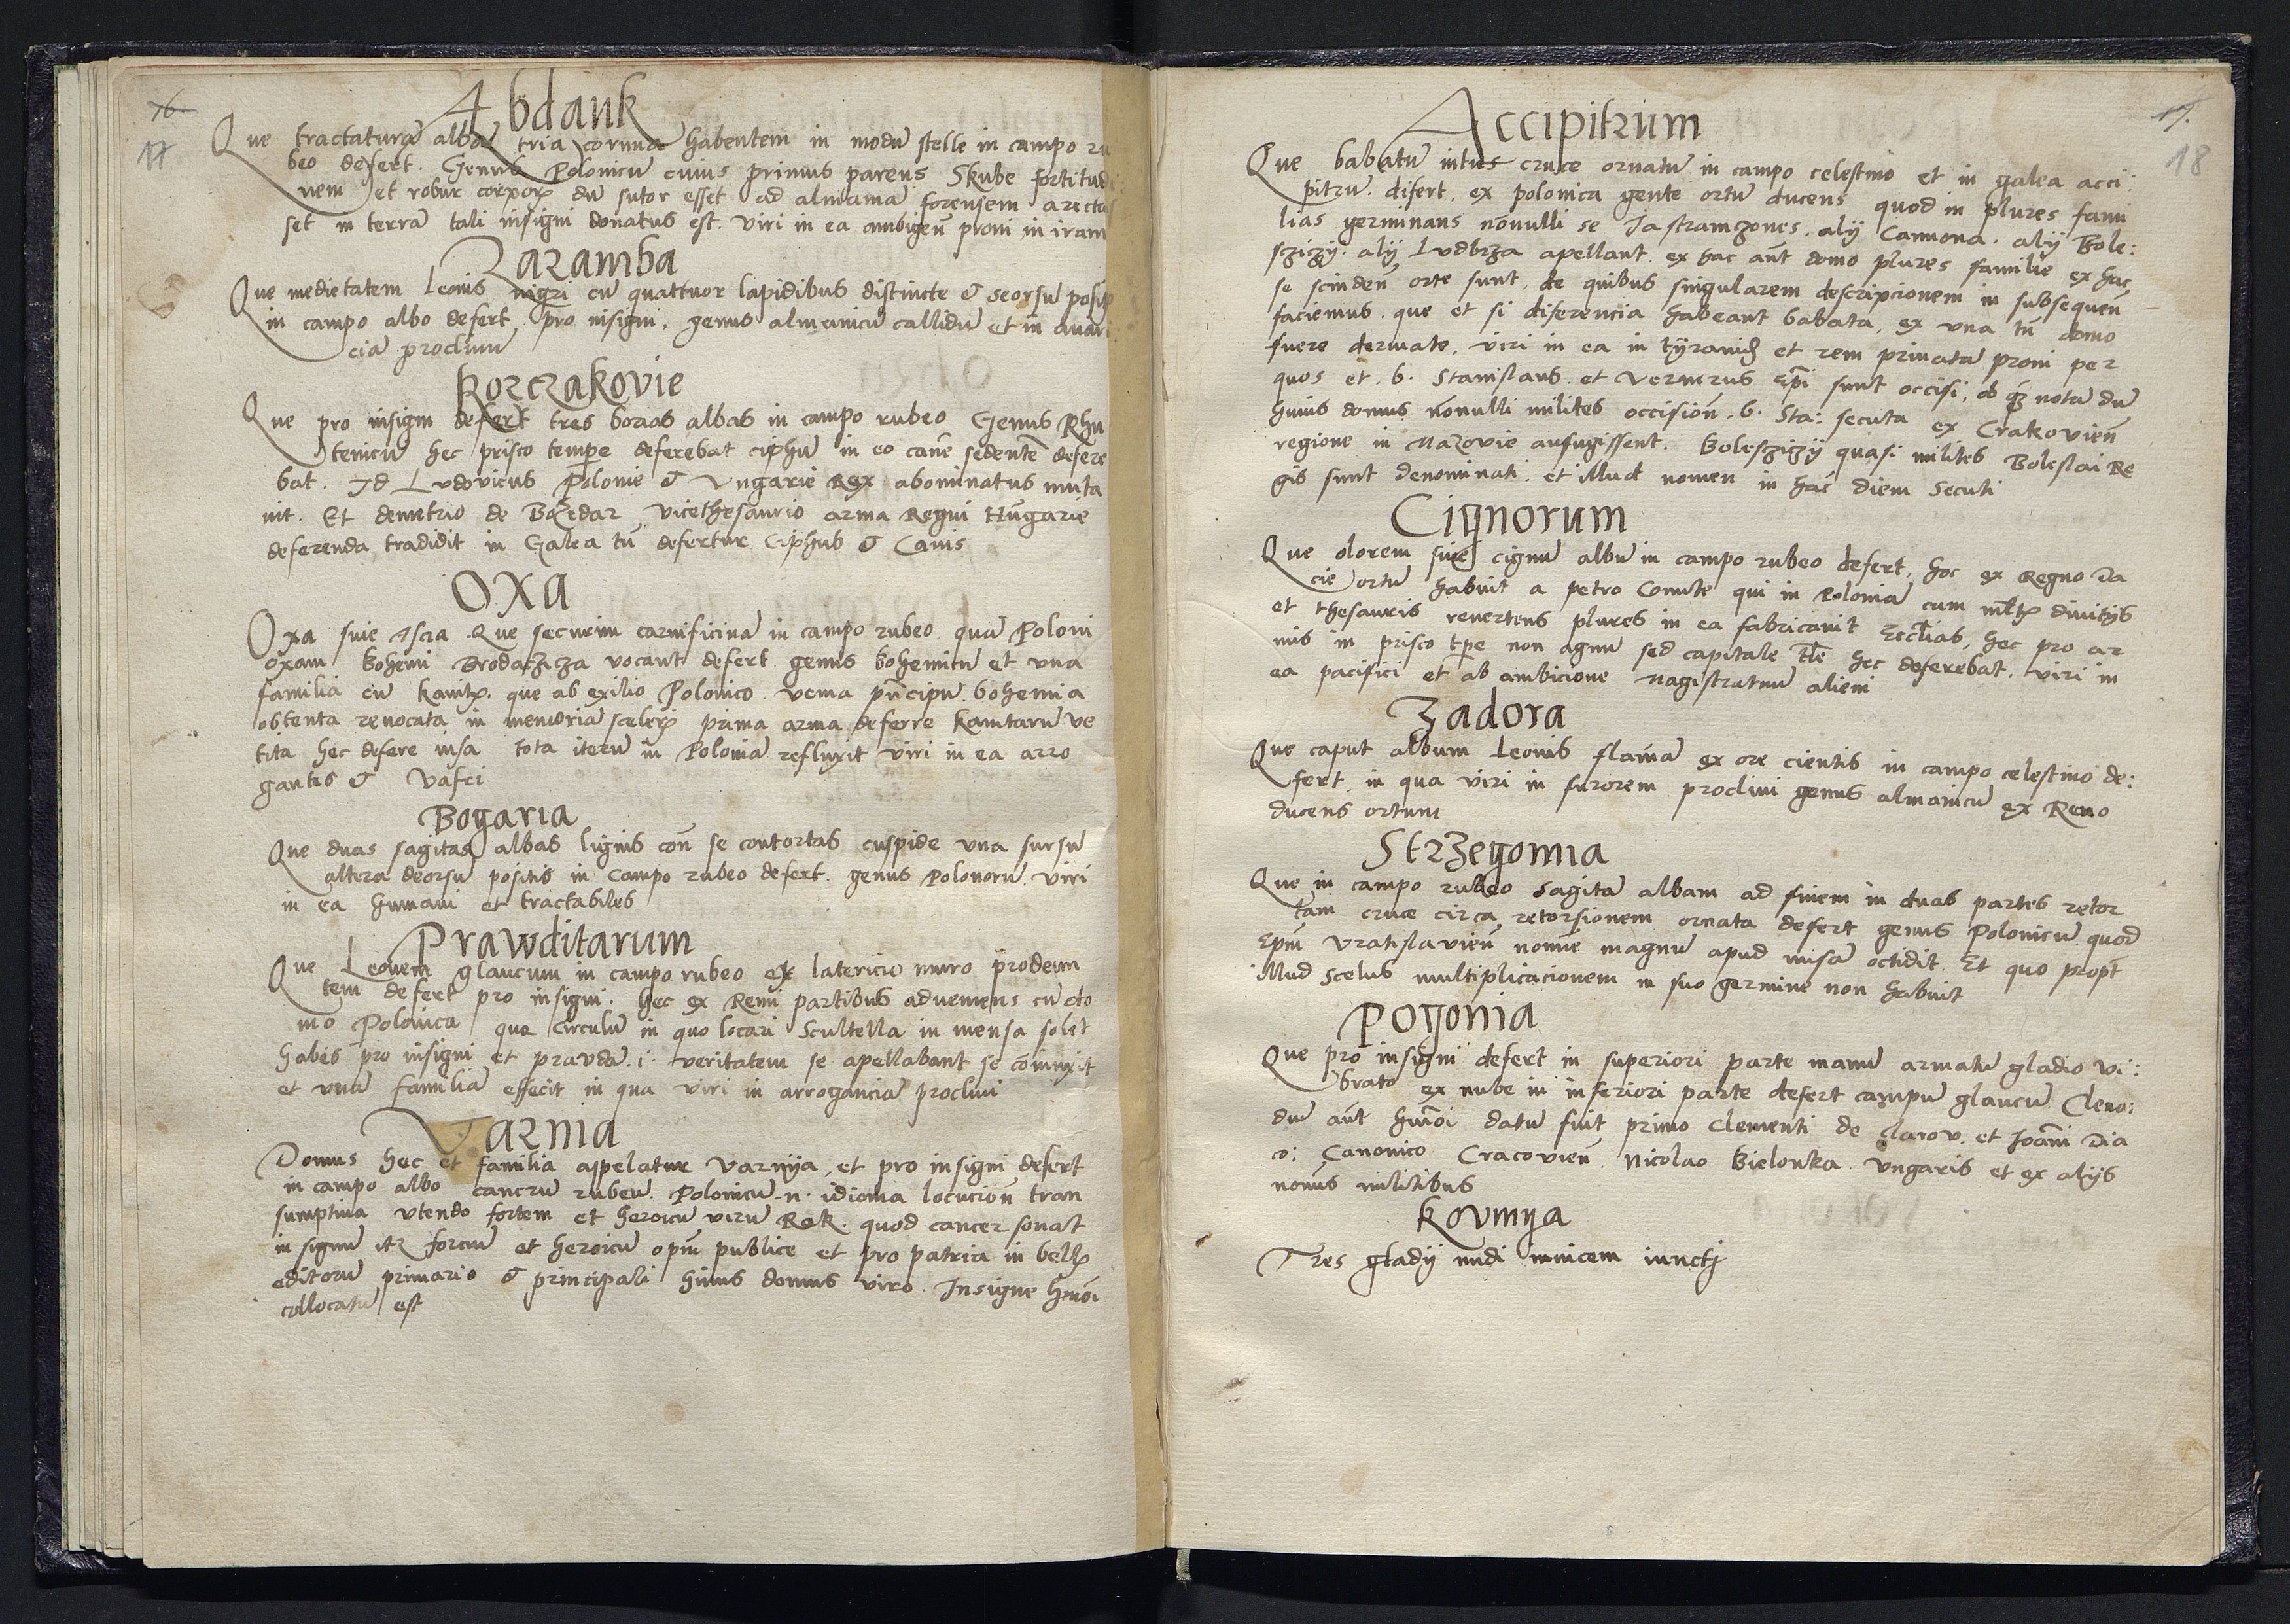 16
17
Abdank
Que tractaturā albā tria cornua habentem in modū stelle in campo ru
beo defert. Genus Polonicū cuius primus parens Skube fortitudi:
nem et robur dū sutor esset ad almamā forensem
set in terrā tali insigni donatus est. viri in ea ambigeñ proni in iram
Zaramba
Que medietatem Leonis nigri cū quattuor lapidibus distincte & seorsū
in campo albo defert pro insigni. genus almanicū callidū et in avari
ciā proclivū
Korczakovie
Que pro insigni defert tres boras albas in campo rubeo Genus Rhu
tenicū hec prisco tempe deferebat ciphū in eo canē sedentē defere
bat. Id Ludovicus Polonie & Vngarie Rex abominatus muta
uit. Et demetrio de Bozedar vicethesaurio arma Regni Hūgarie
deferenda tradidit in Galea tñ defertur Ciphus & Canis
OXA
Oxa siue Ascia Que securim carnificinā in campo rubeo quā Poloni
oxam bohemi Brodaczicza vocant defert genus bohemicū et vna
familiā cū que ab exilio Polonico venia pñcipū bohemia
obtenta reuocata in memoriā prima arma deferre Kanitarū ve
tita hec defere tota iterū in Poloniā refluxit viri in ea arro
gantes & vafri
Bogaria
Que duas sagitas albas lignis coñ se contortas cuspide vna sursū
altera deorsū positis in Campo rubeo defert. genus Polonorū viri
in ea humani et tractabiles
Prawditarum
Que Leonem glaucum in campo rubeo ex latericio muro prodeun
tem defert pro insigni. hec ex Reni partibus adveniens cū do
mo Polonica que circulū in quo locari Scultella in mensa solet
habēs pro insigni et pravdā .i. veritatem se apellabant se coniuxit
et vnā familiā effecit in qua viri in arroganciā proclivi
Varnia
Domus hec et familia appelatur Varnija, et pro insigni defert
in campo albo cancrū rubeū. Polonicū .n. idioma locucioñ tran
sumptiua vtendo fortem et heroicū virū Rak. quod cancer sonat
in signū forciū et heroicū opm̄ publice et pro patria in bell
editorū primario & principali huius domus viro. Insigne hm̄oi
collocatū est
17.
18
Accipitrum
Que babatū intus cruce ornatū in campo celestino et in galea acci:
pitrū. difert. ex polonica gente ortū ducens quod in plures fami
lias germinans nonnulli se Jastramzones. alij Cannona. alij Bole:
szczizy. alij Ludbrza apellant. ex hac aūt domo plures familie ex hac
se scinden̄ orte sunt. de quibus singularem descripcionem in subsequen̄
faciemus. que et si diferencia habeant babata, ex vna tñ domo
fuere deriuate, viri in ea in tyranid et rem priuatā proni per
quos et. b. Stanislaus. et Vernerus Epi sunt occisi, ob notā dū
huius domus nonnulli milites occision. b. Sta: secuta ex Crakovien̄
regione in Mazovie aufugissent. Boleszczizij quasi milites Boleslai Re
gis sunt denominati. et illud nomen in hāc diem secuti
Cignorum
Que olorem siue cignū albū in campo rubeo defert, hoc ex Regno Da
cie ortū habuit a petro Comite qui in Poloniā cum divitijs
et thesauris reuertens plures in ea fabricauit Ecclias, hec pro ar
mis in prisco tpe non agnū sed capitale hec deferebat. viri in
ea pacifici et ab ambicione magistratuū alieni
Zadora
Que caput album Leonis flāmā ex ore cientis in campo celestino de:
fert. in qua viri in furorem proclivi genus almanicū ex Reno
ducens ortum
Strzegomia
Que in campo rubeo sagitā albam ad finem in duas partes retor
tam cruce circa retorsionem ornatā defert genus Polonicū quod
Epm̄ Vratislavien̄ nomīe magnū apud misā occidit. Et quo propt
illud scelus multiplicacionem in suo germine non habuit
Pogonia
Que pro insigni defert in superiori parte manū armatū gladio vi:
brato ex nube in inferiori parte defert campū glaucū Cleno:
dū aūt hm̄oi datū fuit primo Clementi de et Joāni Dia
co: Canonico Cracovien̄. Nicolao Bielonka. Vngaris et ex alijs
nonnūs militibus
Kovnya
Tres gladij nudi inuicem iuncti